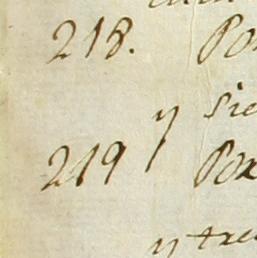 218. Por
y sie
219 Por
y tre